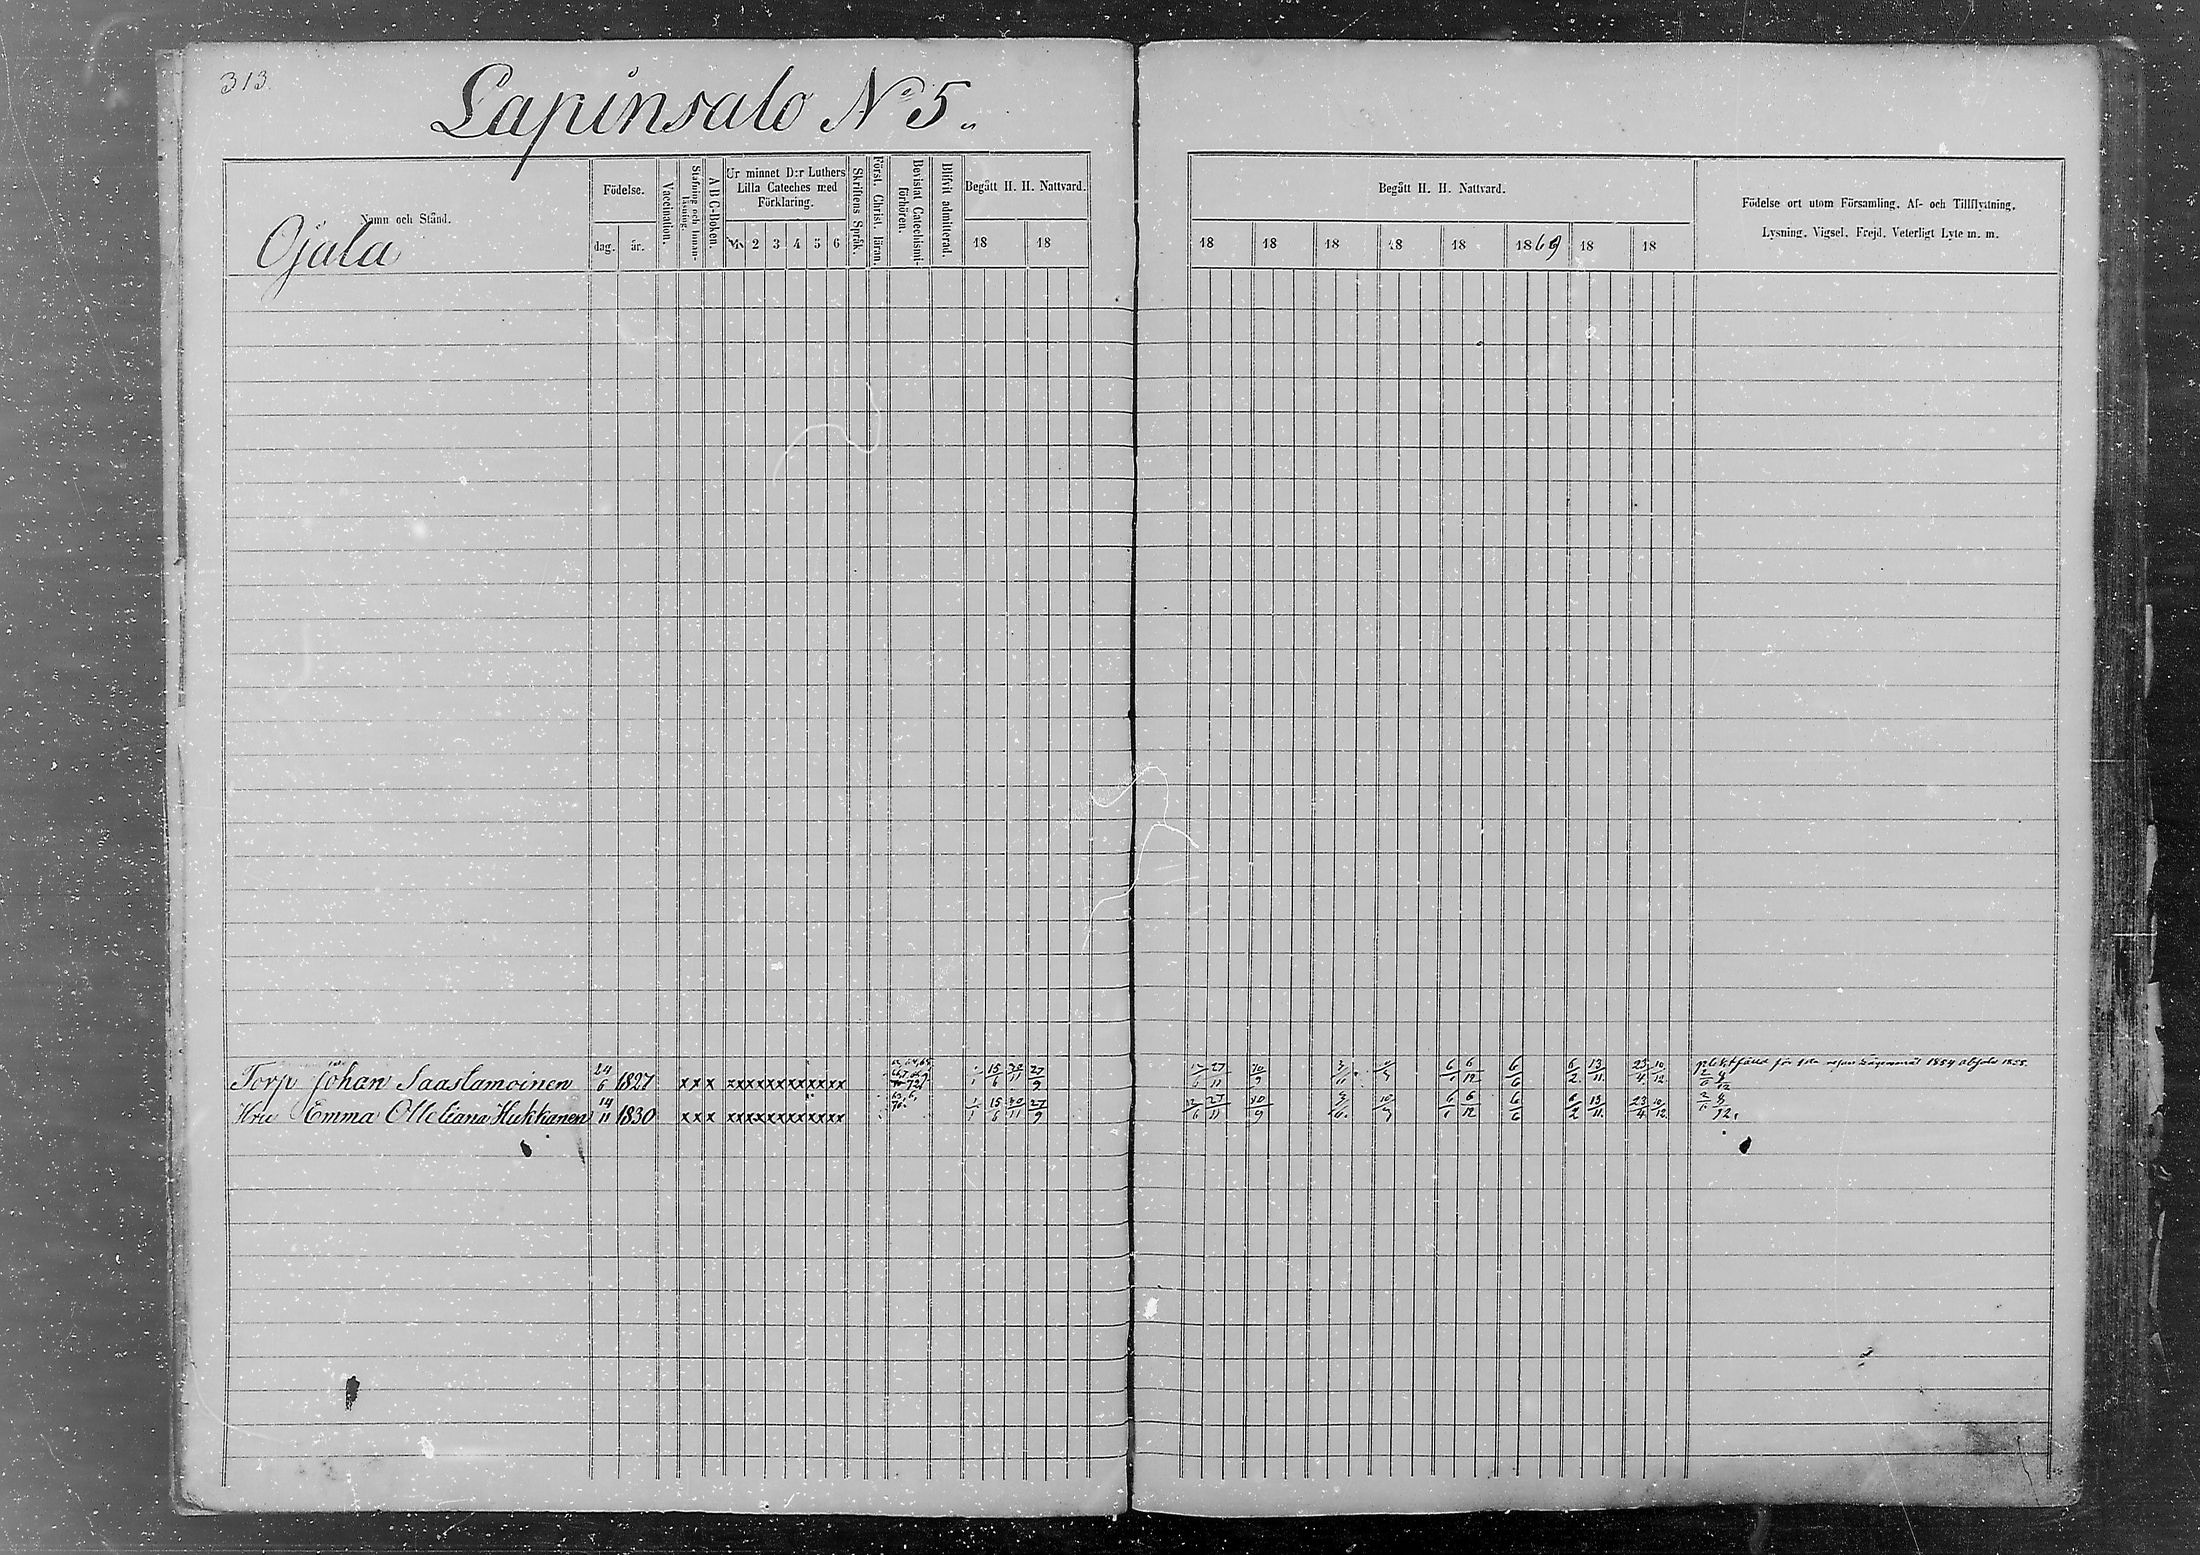 313.
Lapinsalo No 5.
Namn och Stånd.
Ojala
Födelse.
dag. år.
Vaccination.
Stafning och Innanläsning.
A B C-Boken.
Ur minnet D:r Luthers Lilla Cateches med Förklaring.
1 2 3 4 5 6
Skriftens Språk.
Först. Christ. läran.
Bevistat Catechismiförhören.
Blifvit admitterad.
Begått H. H. Nattvard.
18 18
Begått H. H. Nattvard.
18 18 18 18 18 1869 18 18
Födelse ort utom Församling. Af- och Tillflyttning.
Lysning. Vigsel. Frejd. Veterligt Lyte m. m.
Torp Johan Saastamoinen 24/6 1827 x x x xxxxxxxxxxxx 15/6 30/11 27/9 27/11 6/6 6/12 6/6 6/2 13/11 23/4 10/12
Hru Emma Otteliana Hukkanen 14/11 1830 x x x xxxxxxxxxxxx 1/1 15/6 30/11 27/9 12/6 27/11 30/9 10/9 6/6 6/12 6/6 6/2 13/11 23/4 10/12